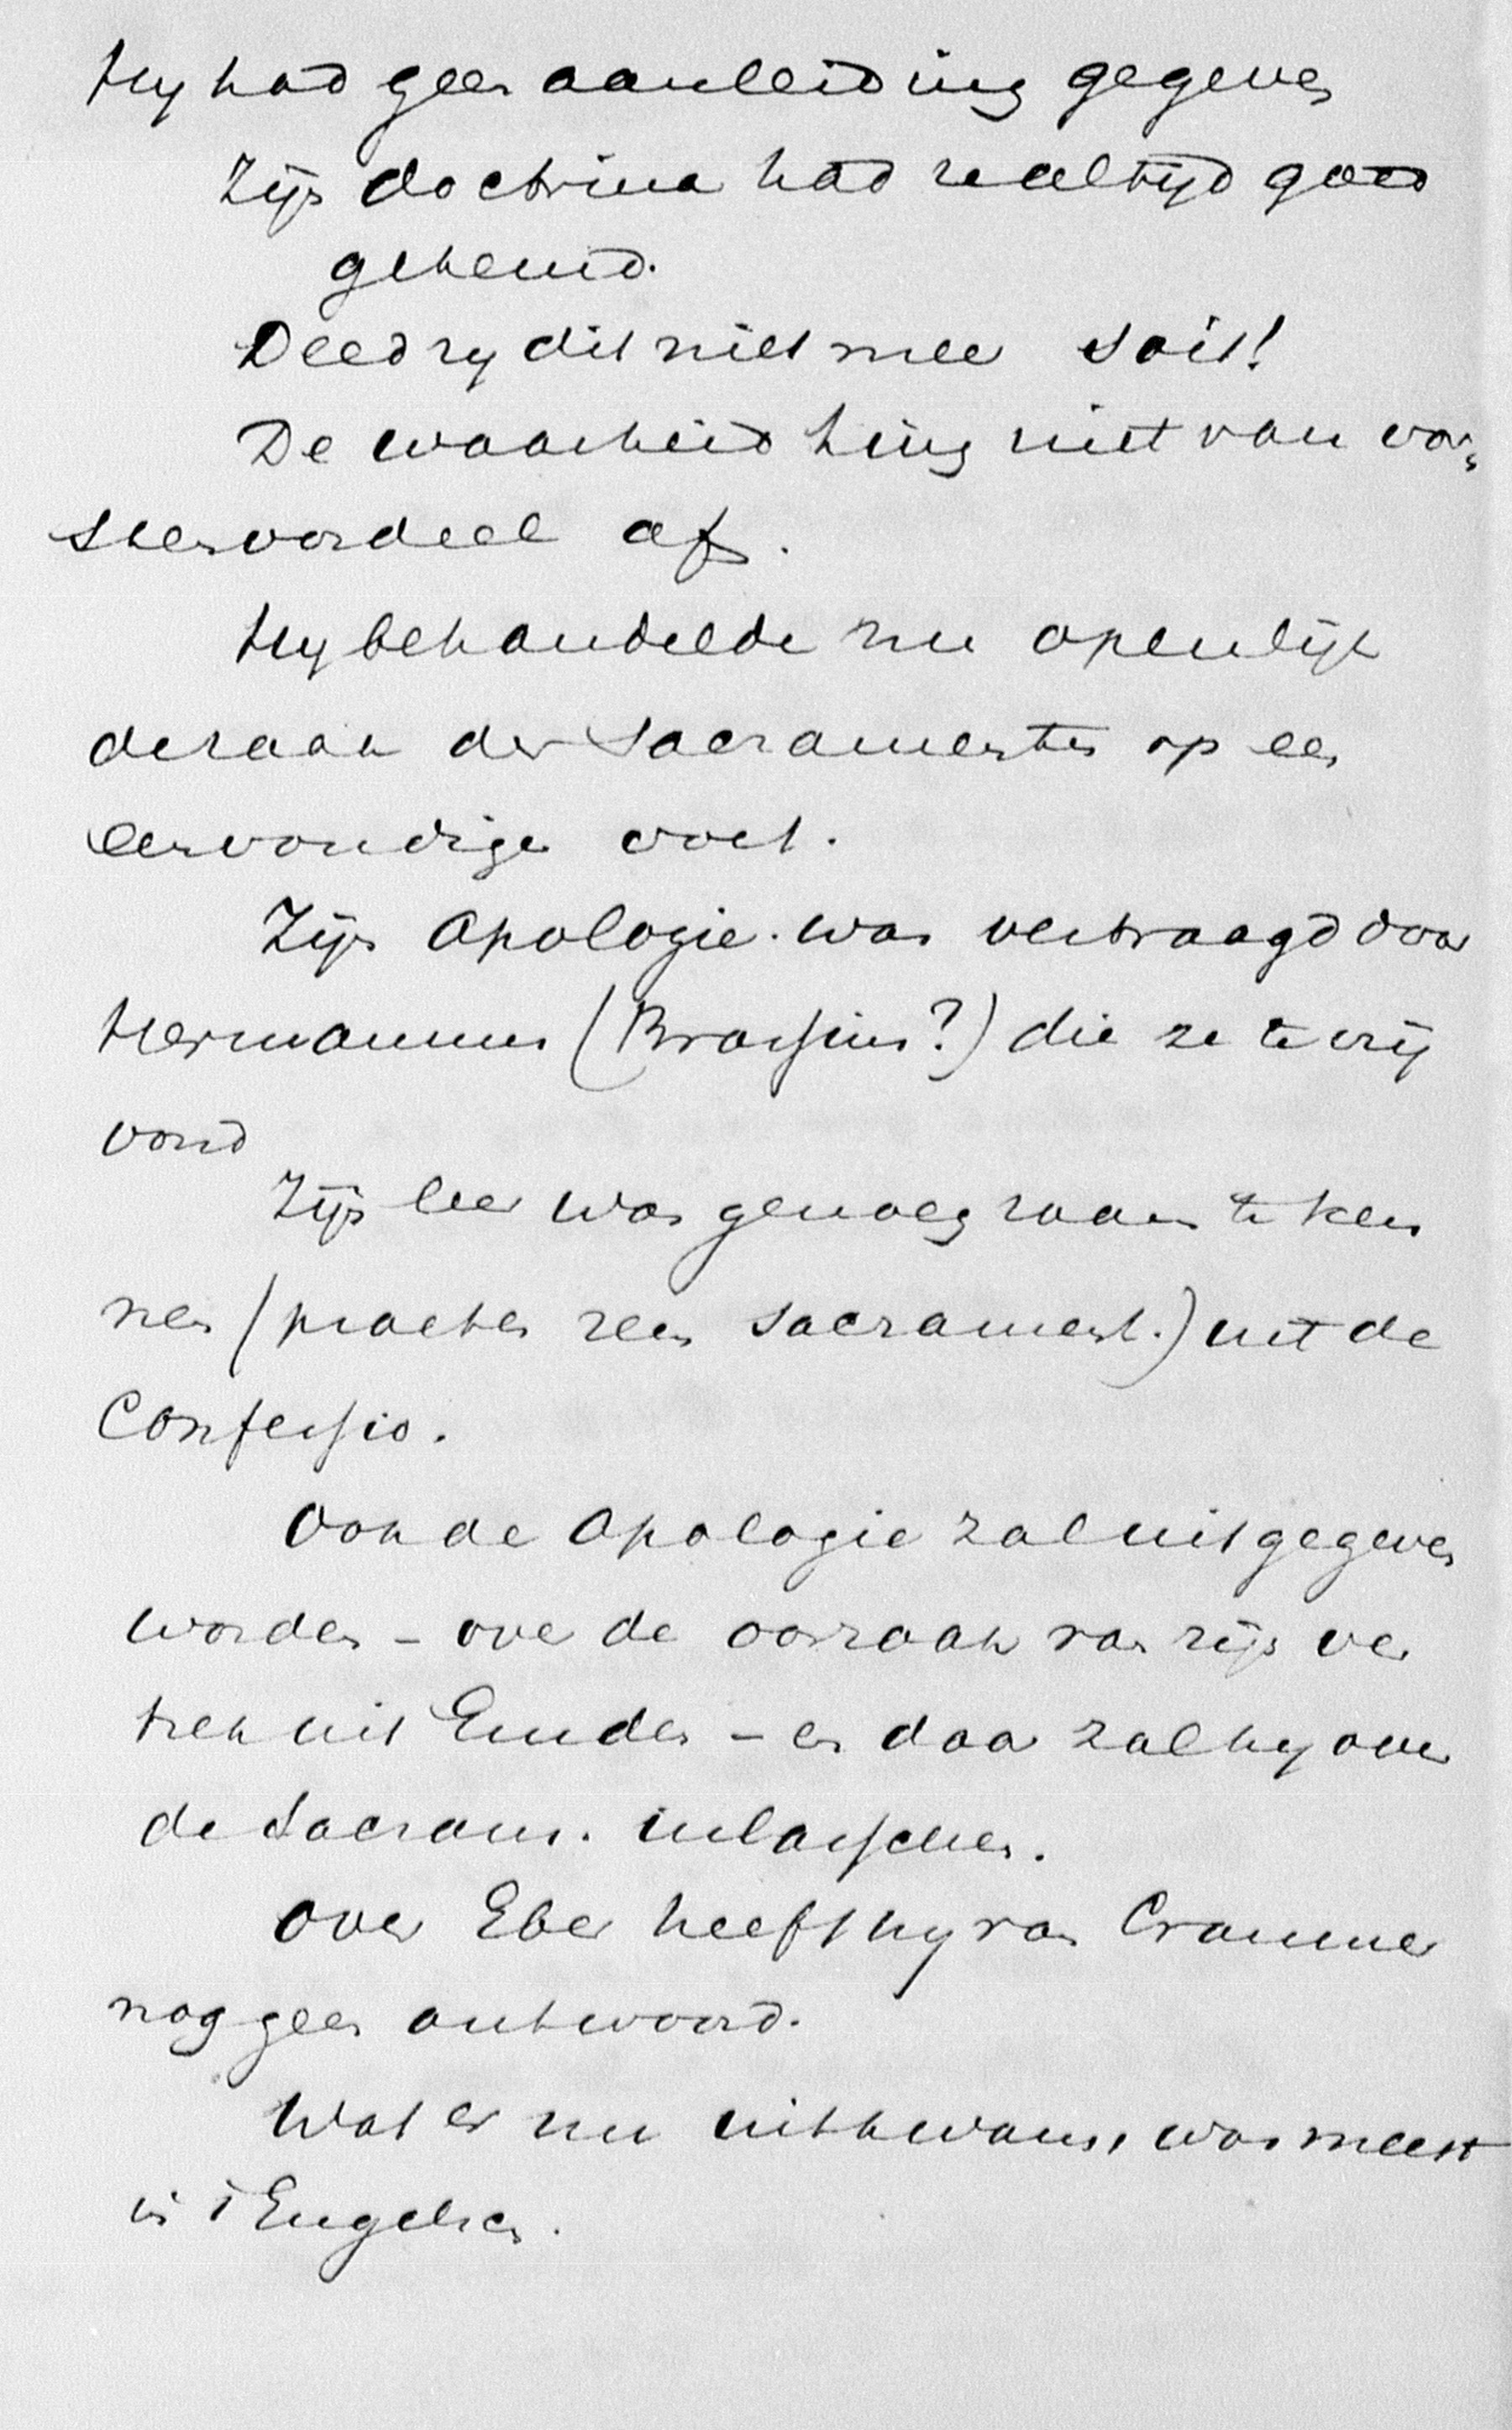 Hy had geen aanleiding gegeven
Zijn doctrina had ze altijd goed
gekeurd.
Deed zy dit niet meer soit!
De waarheid hing niet van vor-
stenvoordeel af.
Hy behandelde nu openlijk
de zaak der Sacramenten op een
eenvoudige voet.
Zijn Apologie. was vertraagd door
Hermannus (Brassius?) die ze te vrij
vond
Zijn leer was genoeg zaam te ken
nen (praeter rem sacrament.) uit de
Confessio.
Ook de Apologie zal uitgegeven
worden - over de oorzaak van zijn ver
trek uit Emden - en daar zal hy over
de Sacram. inlasschen.
Over Eber heeft hy van Cranmer
nog geen antwoord.
Wat er nu uitkwam, was meest
in 't Engelsch.